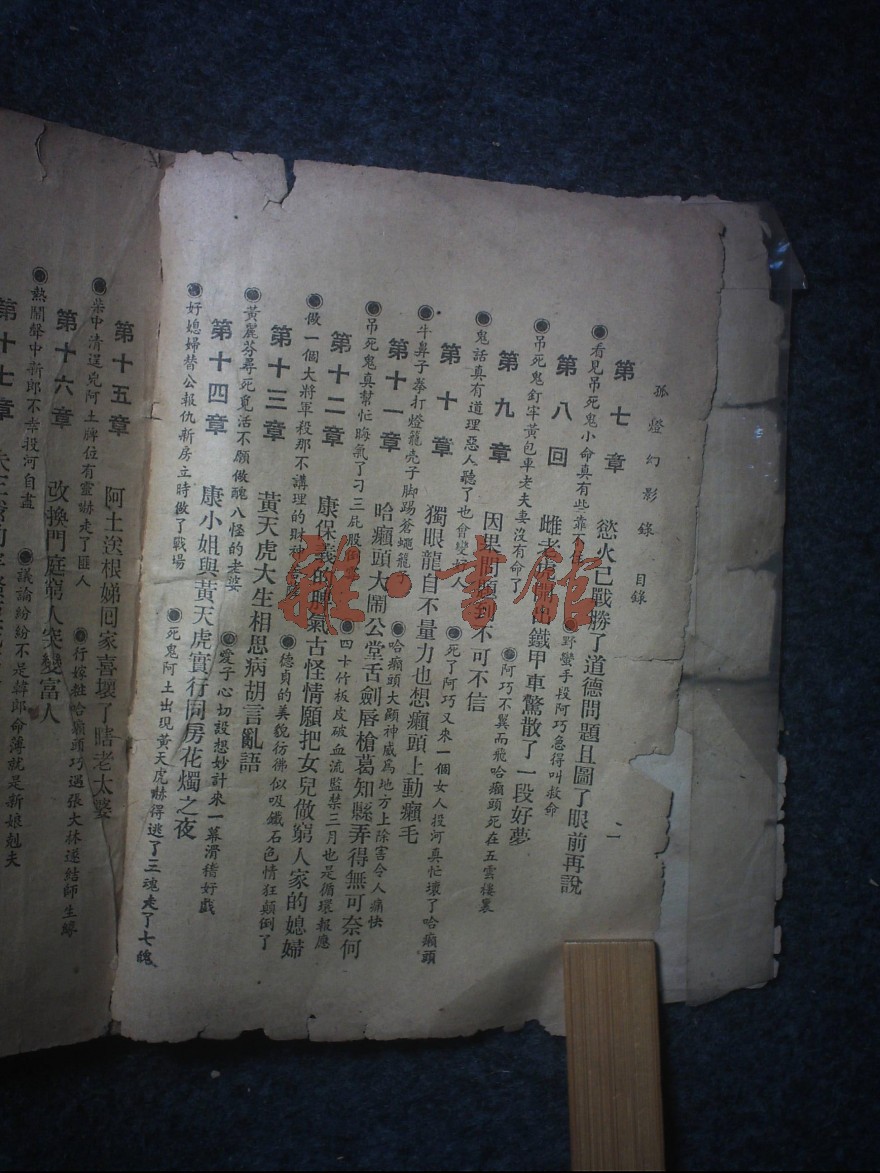 孤燈幻影錄 目錄 二
第七章 慾火已戰勝了道德問題且圖了眼前再說
●看見吊死鬼小命真有些靠不 野蠻手段阿巧急得叫救命
第八回 雌老虎 出鐵甲車驚散了一段好夢
●吊死鬼釘牢黃包車老夫妻沒有命了 ●阿巧不翼而飛哈癩頭死在五雲樓裏
第九章 因果 到不可不信
●鬼話真有道理惡人聽了也會變 人 ●死了阿巧又來一個女人投河真忙壞了哈癩頭
第十章 獨眼龍自不量力也想癩頭上動癩毛
●牛鼻子拳打燈籠壳子脚踢蒼蠅籠子 ●哈癩頭大顯神威爲地方上除害令人痛快
第十一章 哈癩頭大鬧公堂舌劍唇槍葛知縣弄得無可奈何
●吊死鬼真幫忙晦氣了刁三屁股 ●四十竹板皮破血流監禁三月也是循環報應
第十二章 康保義的脾氣古怪情願把女兒做窮人家的媳婦
●做一個大將軍殺那不講理的財神 ●德貞的美貌彷彿似吸鐵石色情狂顛倒了
第十三章 黃天虎大生相思病胡言亂語
●黃麗芬尋死覓活不願做醜八怪的老婆 ●愛子心切設想妙計來一幕滑稽好戲
第十四章 康小姐與黃天虎實行同房花燭之夜
●好媳婦替公報仇新房立時做了戰場 ●死鬼阿土出現黃天虎嚇得逃了三魂走了七魄
第十五章 阿土送根娣囘家喜壞了瞎老太婆
●柴中清逞兇阿土牌位有靈嚇走了匪人 ●行嫁粧哈癩頭巧遇張大林遂結師生緣
第十六章 改換門庭窮人突變富人
●熱鬧聲中新郎不幸投河自盡 ●議論紛紛不是韓郎命薄就是新娘剋夫
第十七章
雜·書館